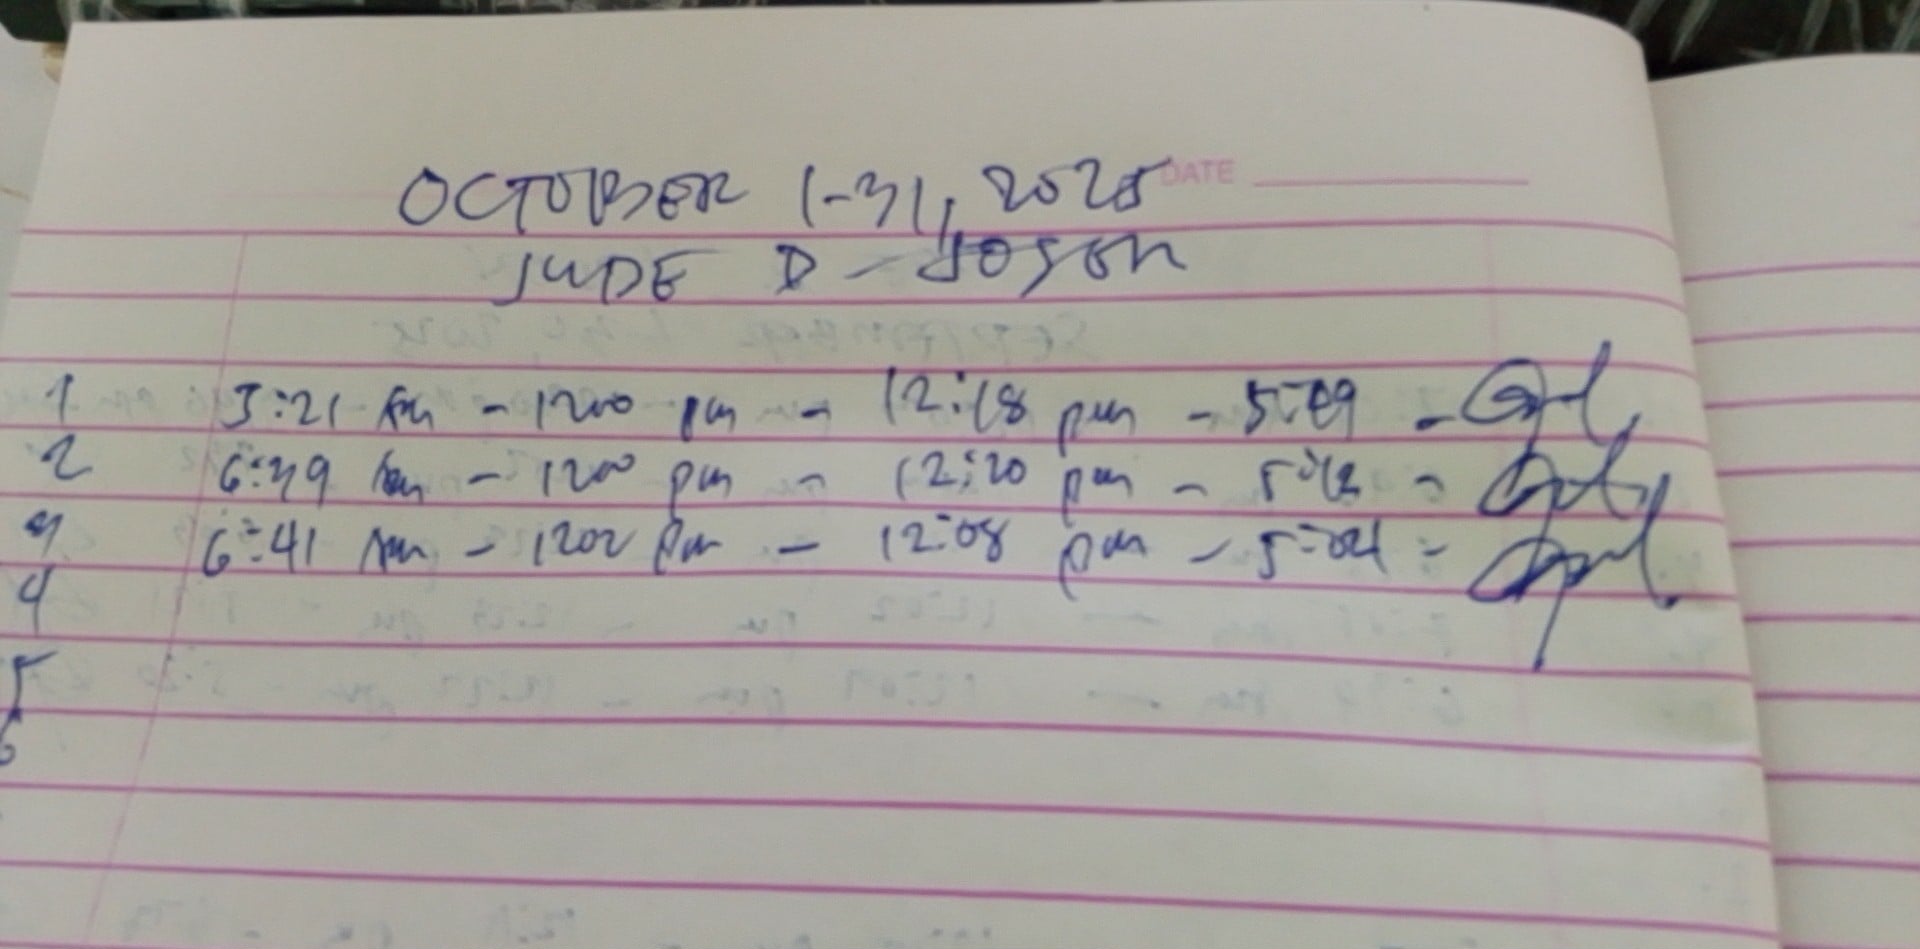 DATE
OCTOBER 1-31, 2025
JUDE D - JOSON
1 5:21 Am - 1200 pm - 12:18 pm - 5:09 -
2 6:49 Am - 1200 pm - 12:20 pm - 5:12 -
3 6:41 Am - 1202 pm - 12:08 pm - 5:04 -
4
5
6